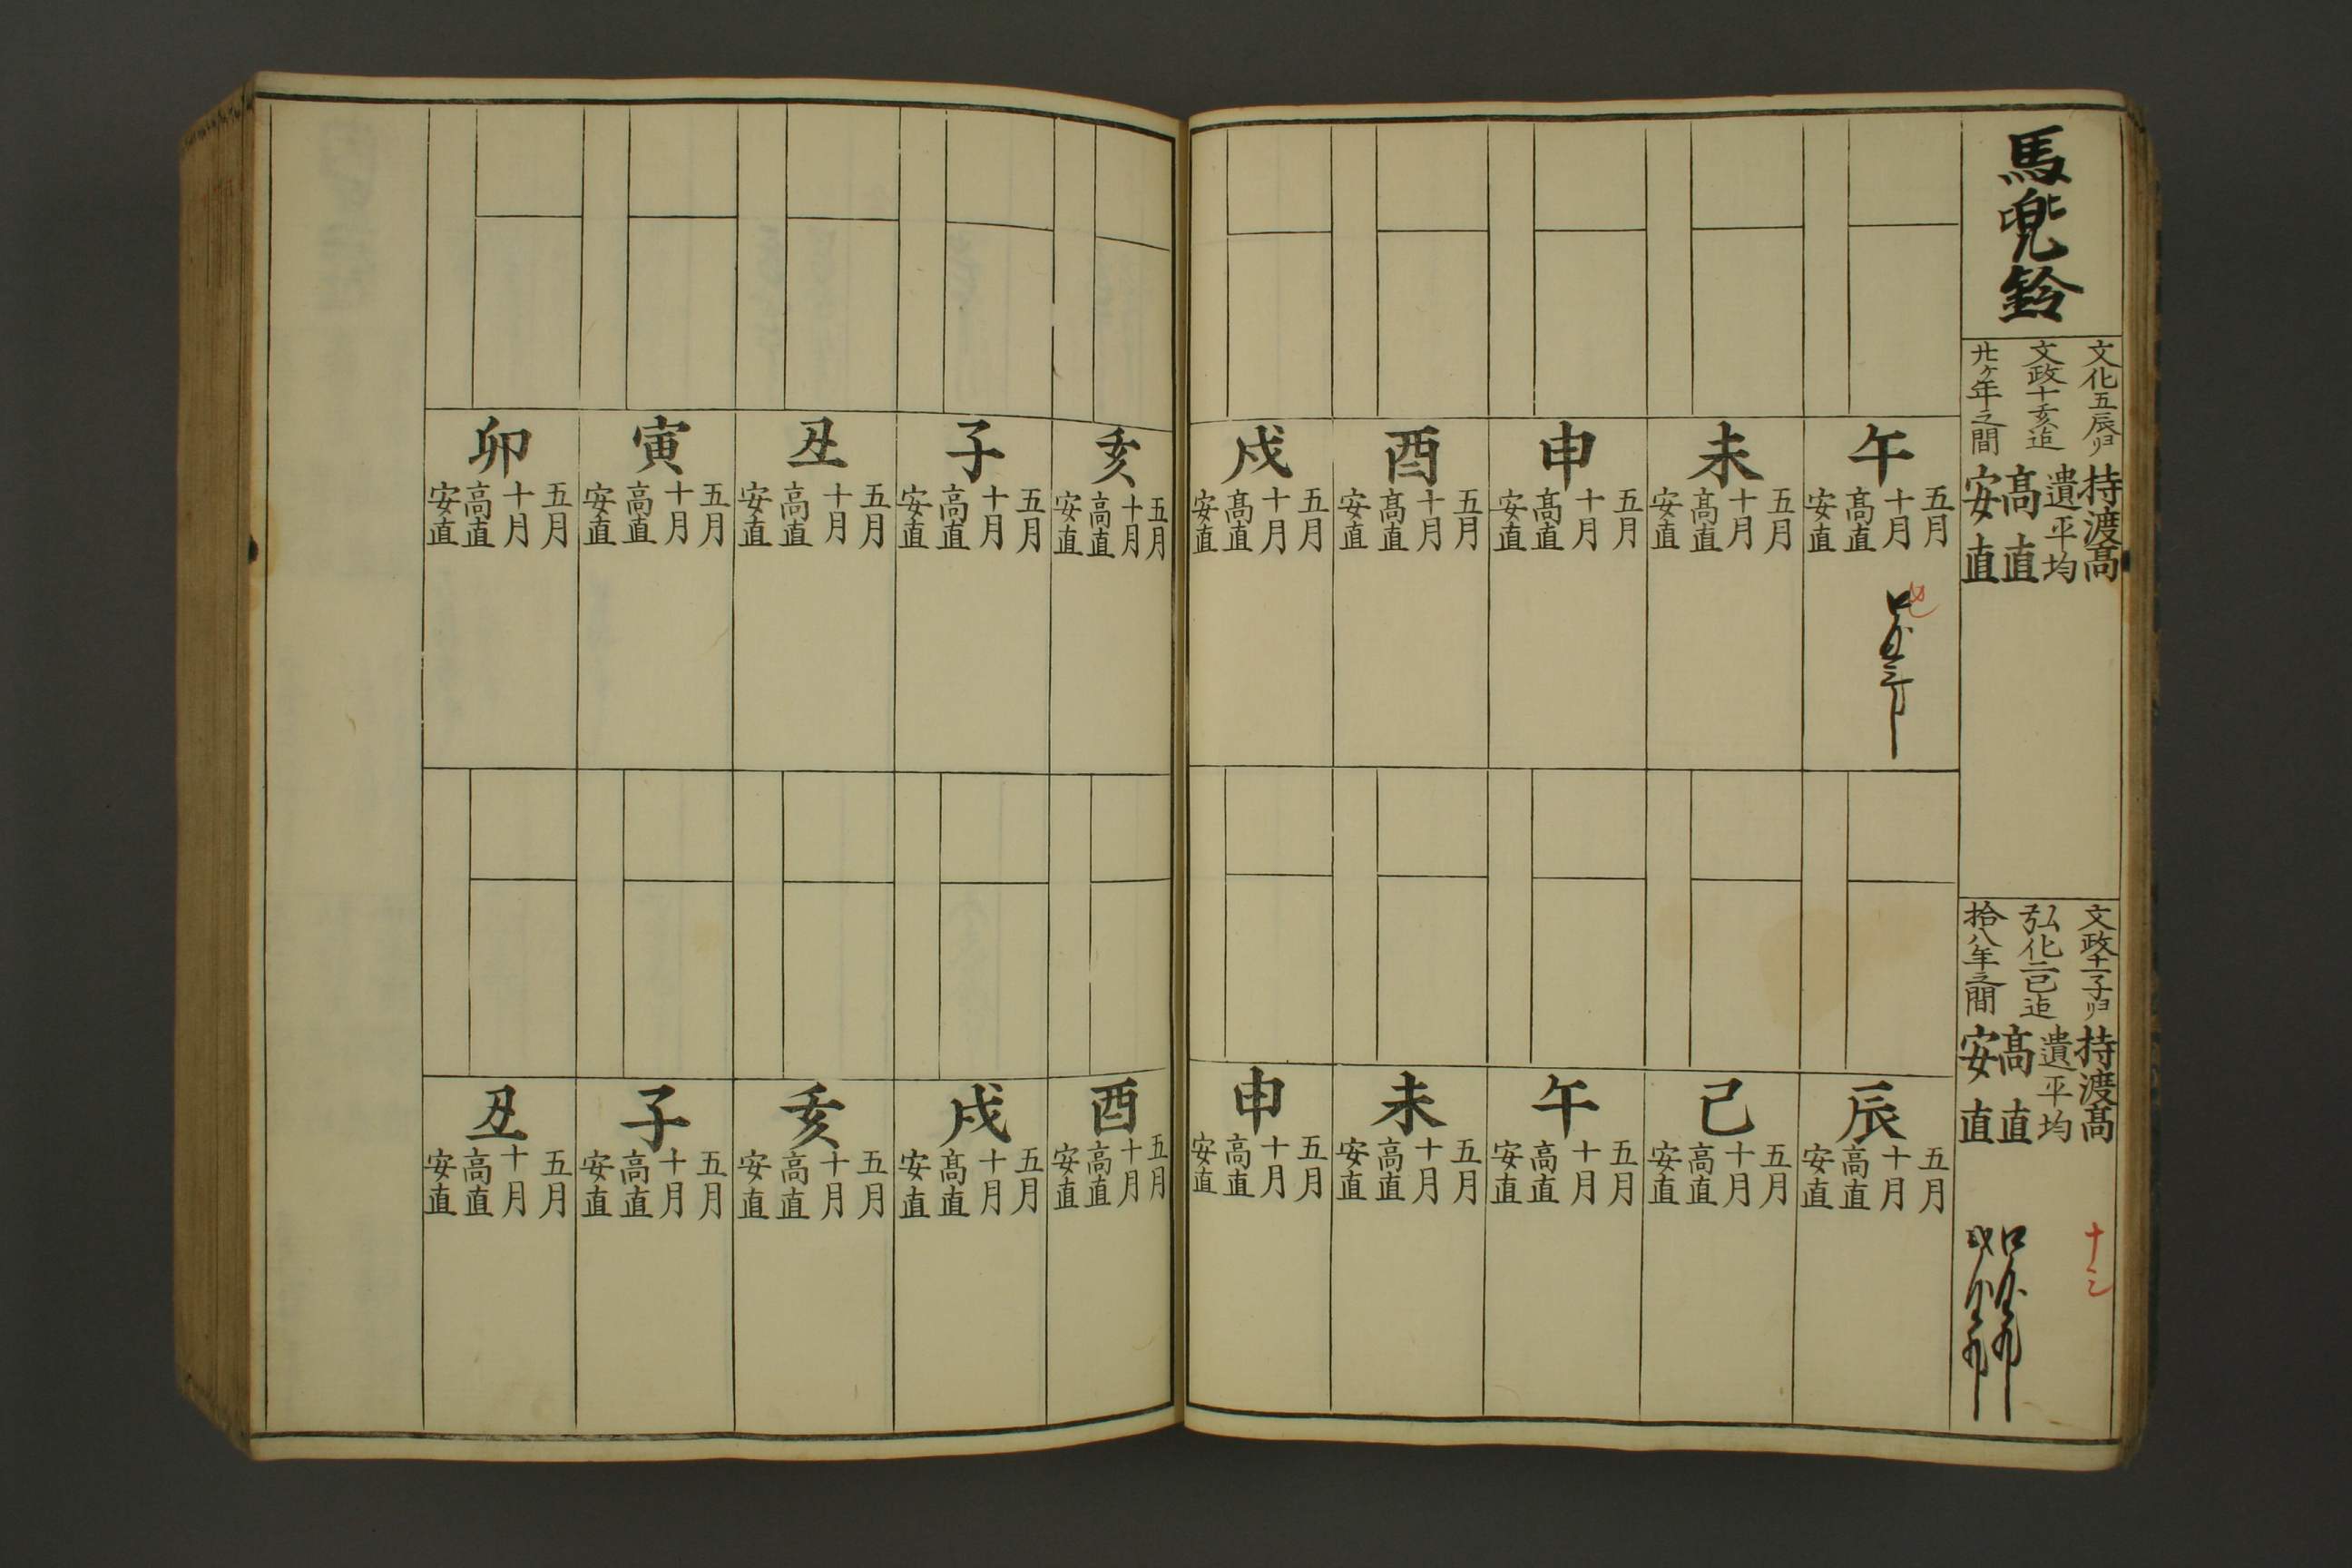 馬兜鈴
文化五辰ゟ
文政十亥迠
廿ヶ年之間
持渡髙
遺平均
髙直
安直
文政十一子ゟ
弘化二巳迠
拾八年之間
持渡髙
遺平均
髙直
安直
十三
午
五月
十月
髙直
安直
未
五月
十月
髙直
安直
申
五月
十月
髙直
安直
酉
五月
十月
髙直
安直
戌
五月
十月
髙直
安直
辰
五月
十月
高直
安直
巳
五月
十月
高直
安直
午
五月
十月
高直
安直
未
五月
十月
高直
安直
申
五月
十月
高直
安直
亥
五月
十月
高直
安直
子
五月
十月
高直
安直
丑
五月
十月
高直
安直
寅
五月
十月
高直
安直
卯
五月
十月
高直
安直
酉
五月
十月
高直
安直
戌
五月
十月
髙直
安直
亥
五月
十月
高直
安直
子
五月
十月
高直
安直
丑
五月
十月
高直
安直